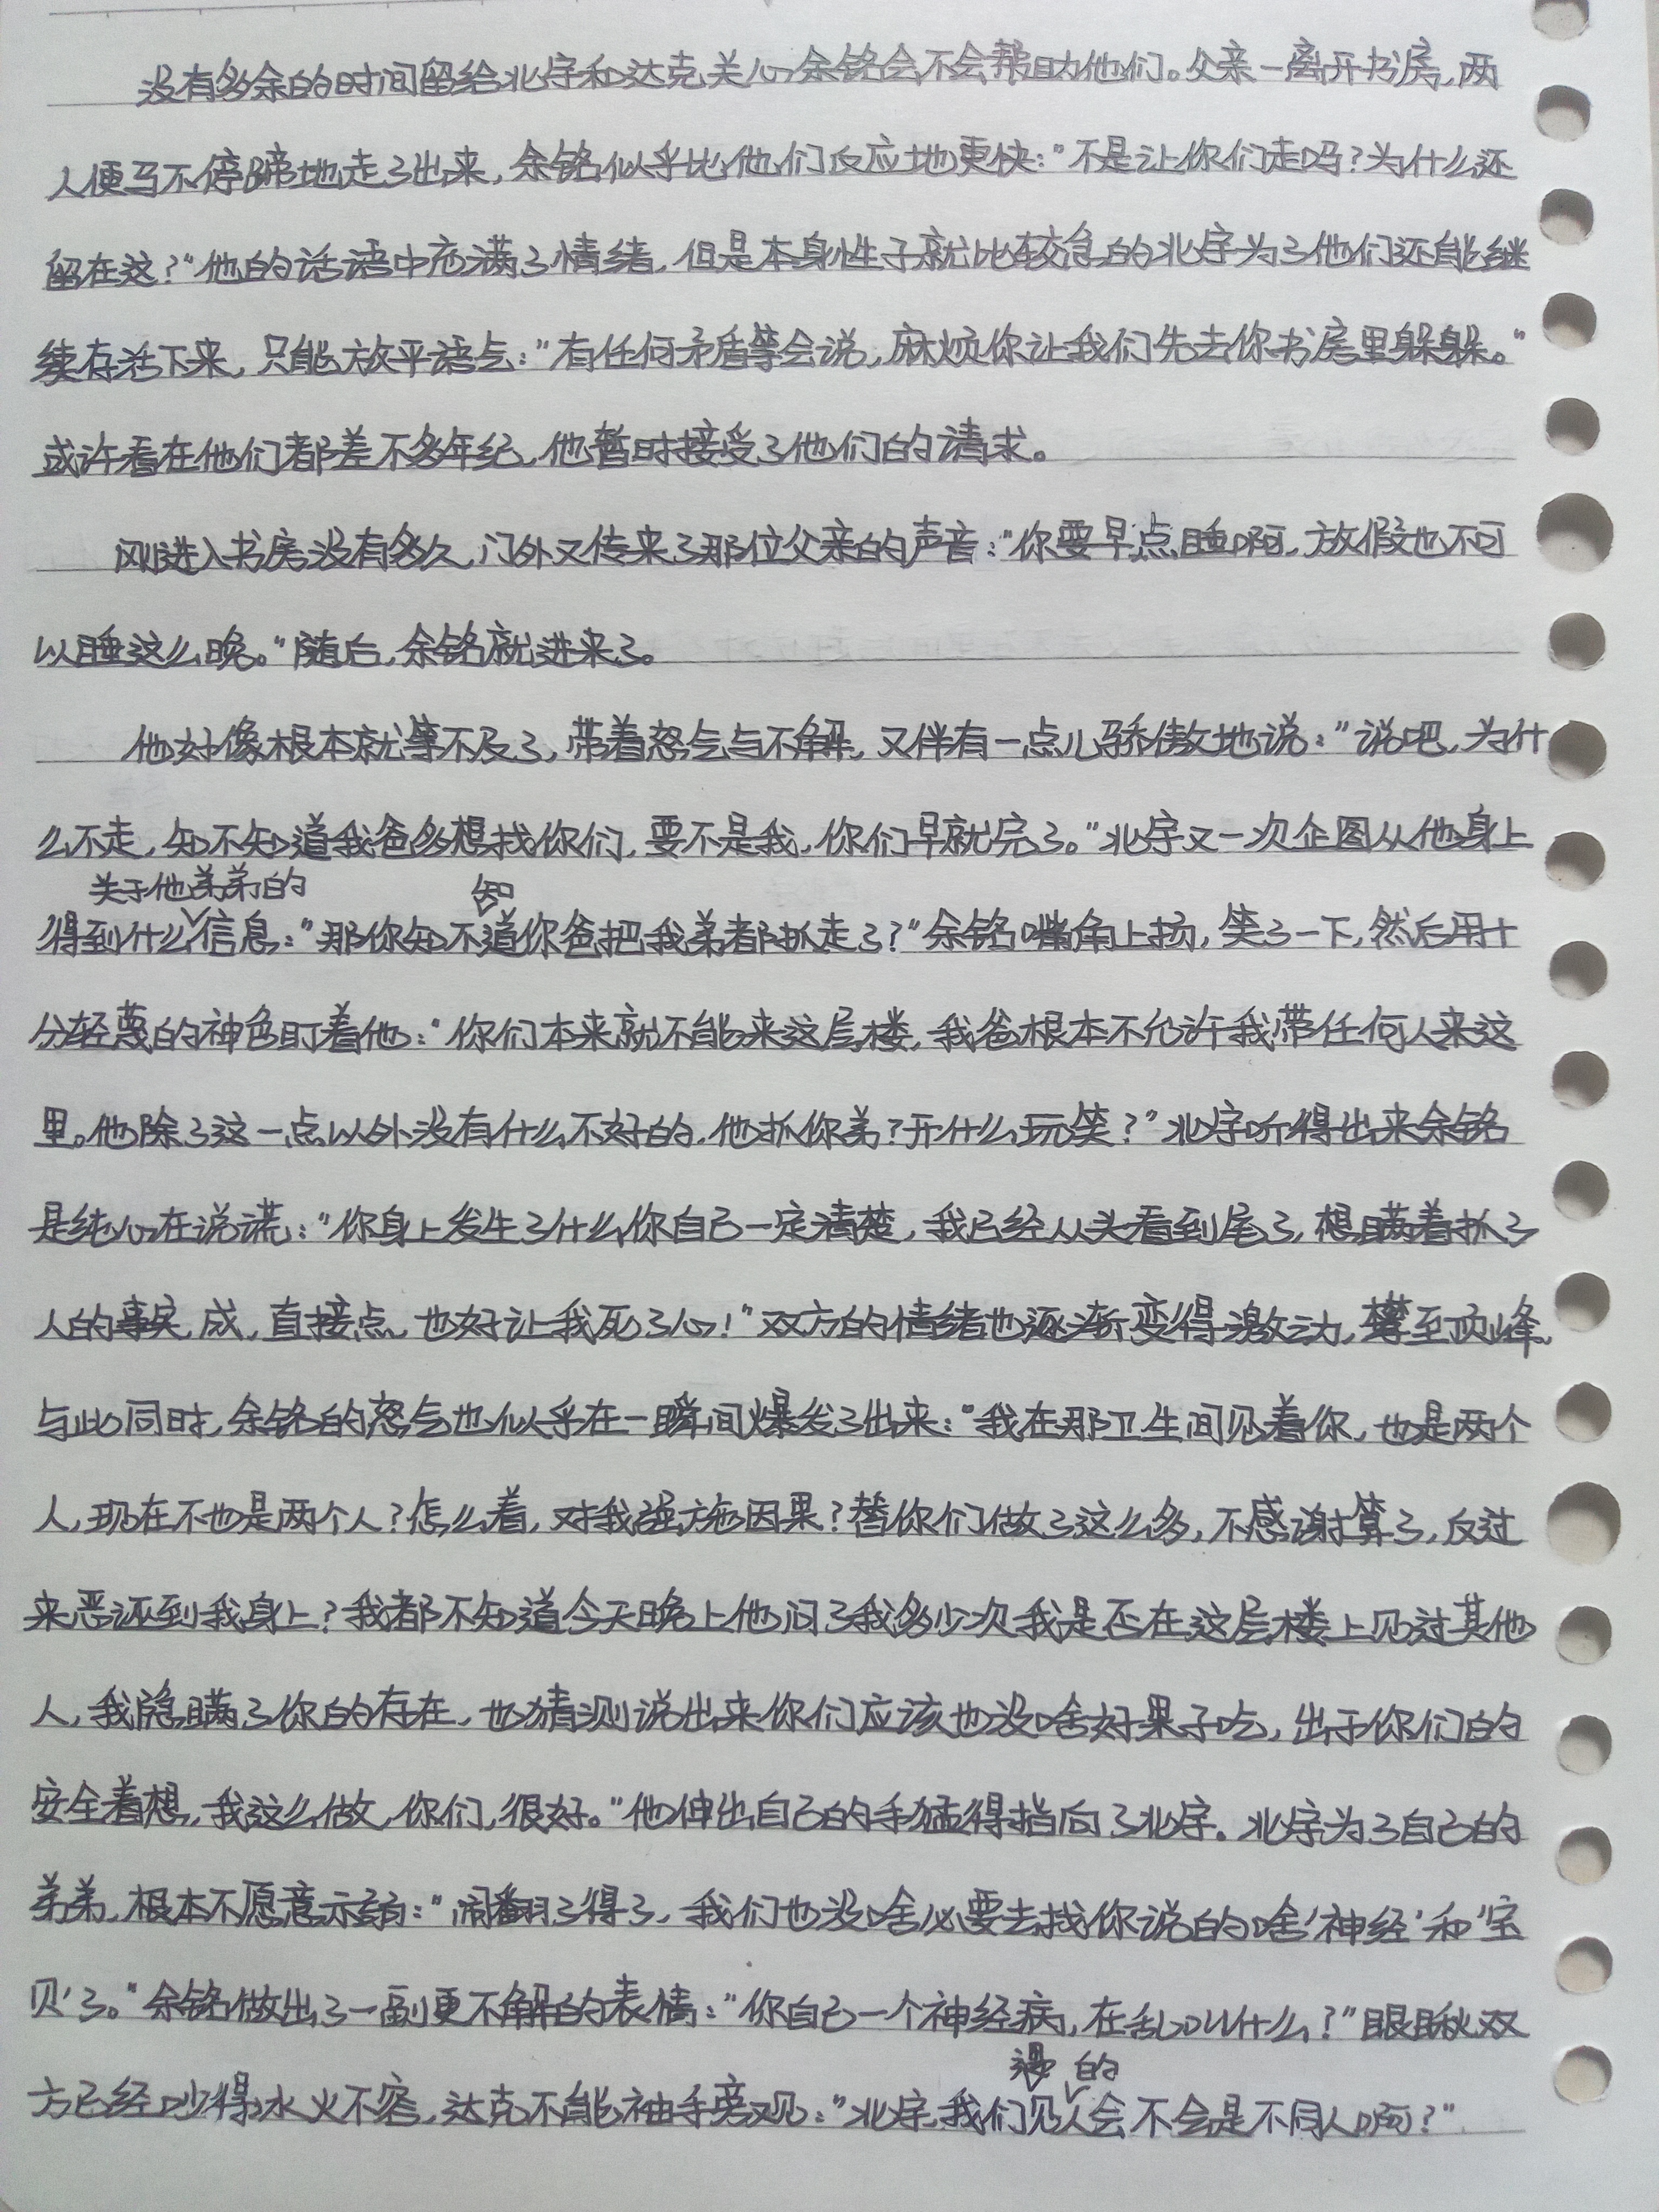 没有多余的时间留给北宇和达克关心余铭会不会帮助他们。父亲一离开书房，两
人便马不停蹄地走了出来，余铭似乎比他们反应地更快：“不是让你们走吗？为什么还
留在这？“他的话语中充满了情绪，但是本身性子就比较急的北宇为了他们还能继
续存活下来，只能放平语气：“有任何矛盾等会说，麻烦你让我们先去你书房里躲躲。”
或许看在他们都差不多年纪，他暂时接受了他们的请求。
刚进入书房没有多久，门外又传来了那位父亲的声音：“你要早点睡啊，放假也不可
以睡这么晚。“随后，余铭就进来了。
他好像根本就等不及了，带着怒气与不解，又伴有一点儿骄傲地说：”说吧，为什
么不走，知不知道我爸多想找你们，要不是我，你们早就完了。“北宇又一次企图从他身上
关于他弟弟的 知
得到什么信息：”那你知不道你爸把我弟都抓走了？“余铭嘴角上扬，笑了一下，然后用十
分轻蔑的神色盯着他：“你们本来就不能来这层楼，我爸根本不允许我带任何人来这
里。他除了这一点以外没有什么不好的，他抓你弟？开什么玩笑？”北宇听得出来余铭
是纯心在说谎：“你身上发生了什么你自己一定清楚，我已经从头看到尾了，想瞒着抓了
人的事实，成，直接点，也好让我死了心！”双方的情绪也逐渐变得激动，攀至顶峰。
与此同时，余铭的怒气也似乎在一瞬间爆发了出来：“我在那卫生间见着你，也是两个
人，现在不也是两个人？怎么着，对我强施因果？替你们做了这么多，不感谢算了，反过
来恶诬到我身上？我都不知道今天晚上他问了我多少次我是否在这层楼上见过其他
人，我隐瞒了你的存在，也猜测说出来你们应该也没啥好果子吃，出于你们的
安全着想，我这么做，你们，很好。“他伸出自己的手猛得指向了北宇。北宇为了自己的
弟弟，根本不愿意示弱：“闹翻了得了，我们也没啥必要去找你说的啥‘神经’和‘宝
贝’了。“余铭做出了一副更不解的表情：“你自己一个神经病，在乱叫什么？”眼瞅双
的
方已经吵得水火不容，达克不能袖手旁观：“北宇，我们见人会不会是不同人啊？”